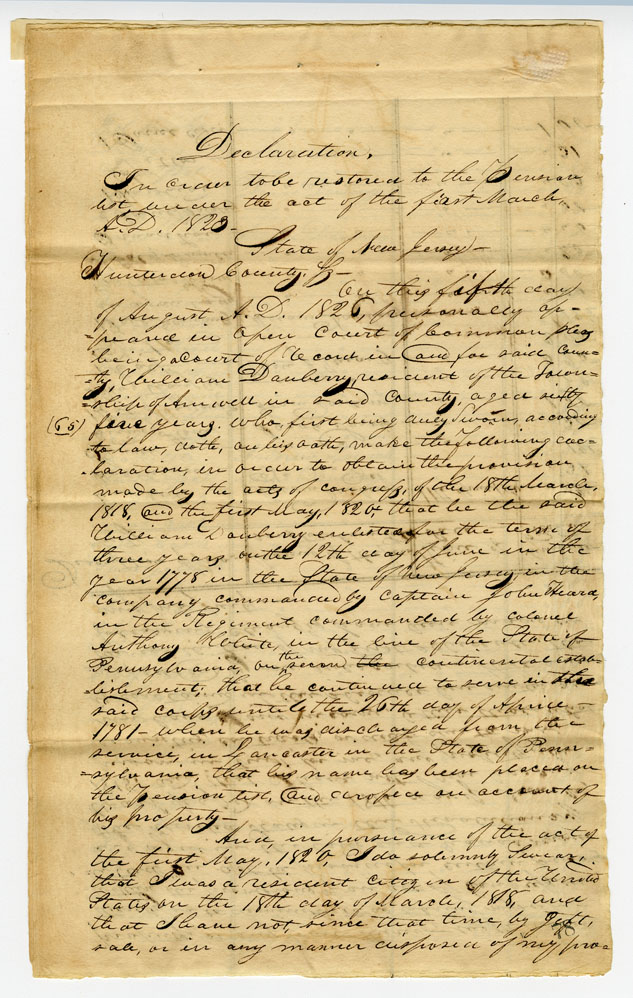 Declaration,
In order to be restored to the Pension
list, under the act of the first March,
A.D. 1823-
State of New Jersey-
Hunterdon County. Ss-
On this fifth day
of August A.D. 1826, personally ap-
-peared in open Court of Common pleas
being a court of Record in and for said Coun-
-ty, William Danberry, resident of the Town-
-ship of Amwell in said County, aged sixty
(65) five years. who, first being duly Sworn, according
to law, doth, on his oath, make the following dec-
-laration, in order to obtain the provision
made by the acts of congress, of the 18th March,
1818, and the first May, 1820, that he the said
William Danberry enlisted for the term of
three years on the 12th day of June in the
year 1778 in the State of New Jersey, in the
company commanded by Captain John Heard,
in the Regiment commanded by colonel
Anthony White, in the line of the State of
Pennsylvania, on the continental estab-
lishment; that he continued to serve in the
said corps until the 26th day of Aprile-
1781- when he was discharged from the
service, in Lancaster in the State of Penn-
-sylvania, that his name has been placed on
the Pension list, and droped on account of
his property-
And, in pursuance of the act of
the first May, 1820, I do solemnly Swear,
that I was a resident citizen of the United
States on the 18th day of March, 1818, and
that I have not, since that time, by gift,
sale, or in any manner disposed of my pro-